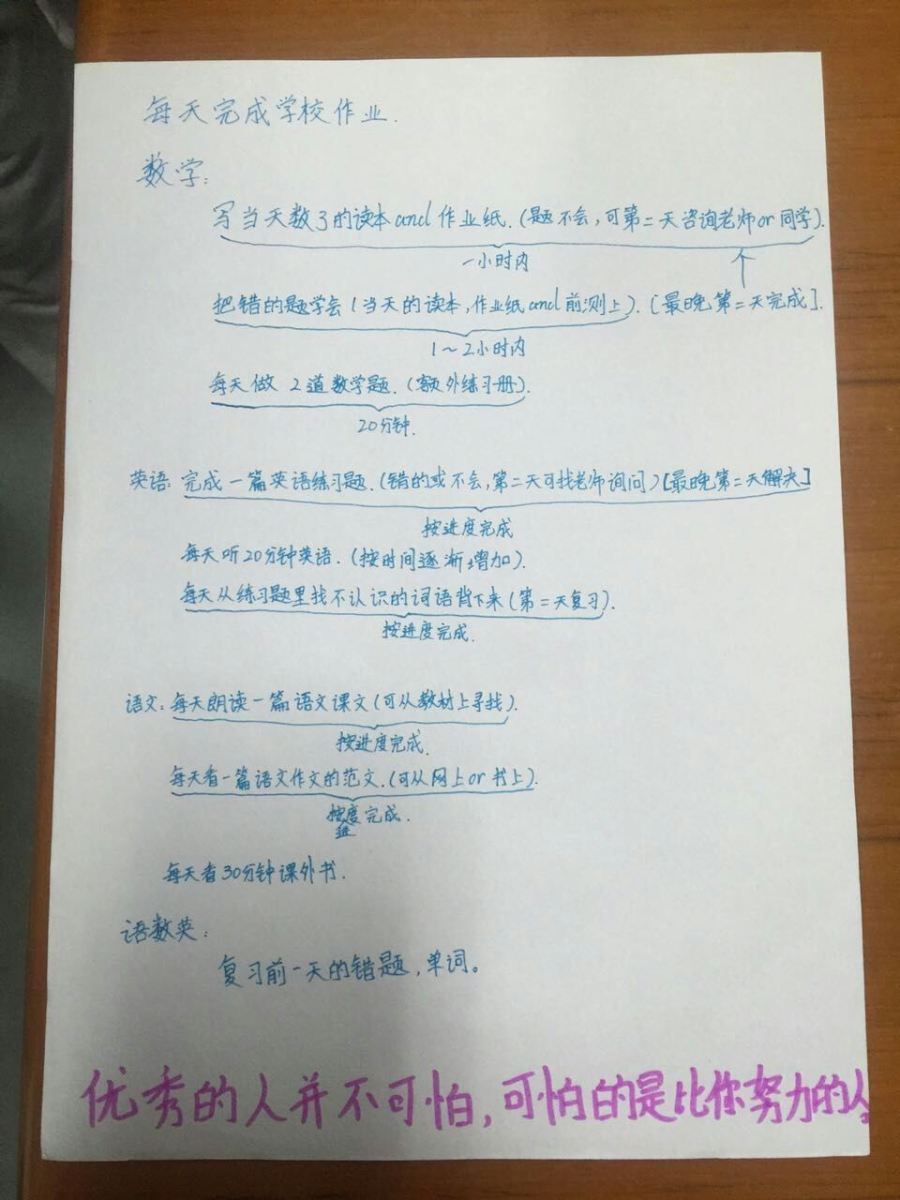 每天完成学校作业.
数学:
写当天数子的读本and作业纸.(题不会,可第二天咨询老师or同学).
一小时内
把错的题学会(当天的读本,作业纸and前测上).[最晚第二天完成].
1~2小时内
每天做 2道数学题.(额外练习册).
20分钟.
英语:完成一篇英语练习题.(错的或不会,第二天可找老师询问)[最晚第二天解决]
按进度完成
每天听20分钟英语.(按时间逐渐增加).
每天从练习题里找不认识的词语背下来(第二天复习).
按进度完成.
语文:每天朗读一篇语文课文(可从教材上寻找).
按进度完成.
每天看一篇语文作文的范文.(可从网上or书上).
按进度完成.
每天看30分钟课外书.
语数英:
复习前一天的错题,单词。
优秀的人并不可怕,可怕的是比你努力的人